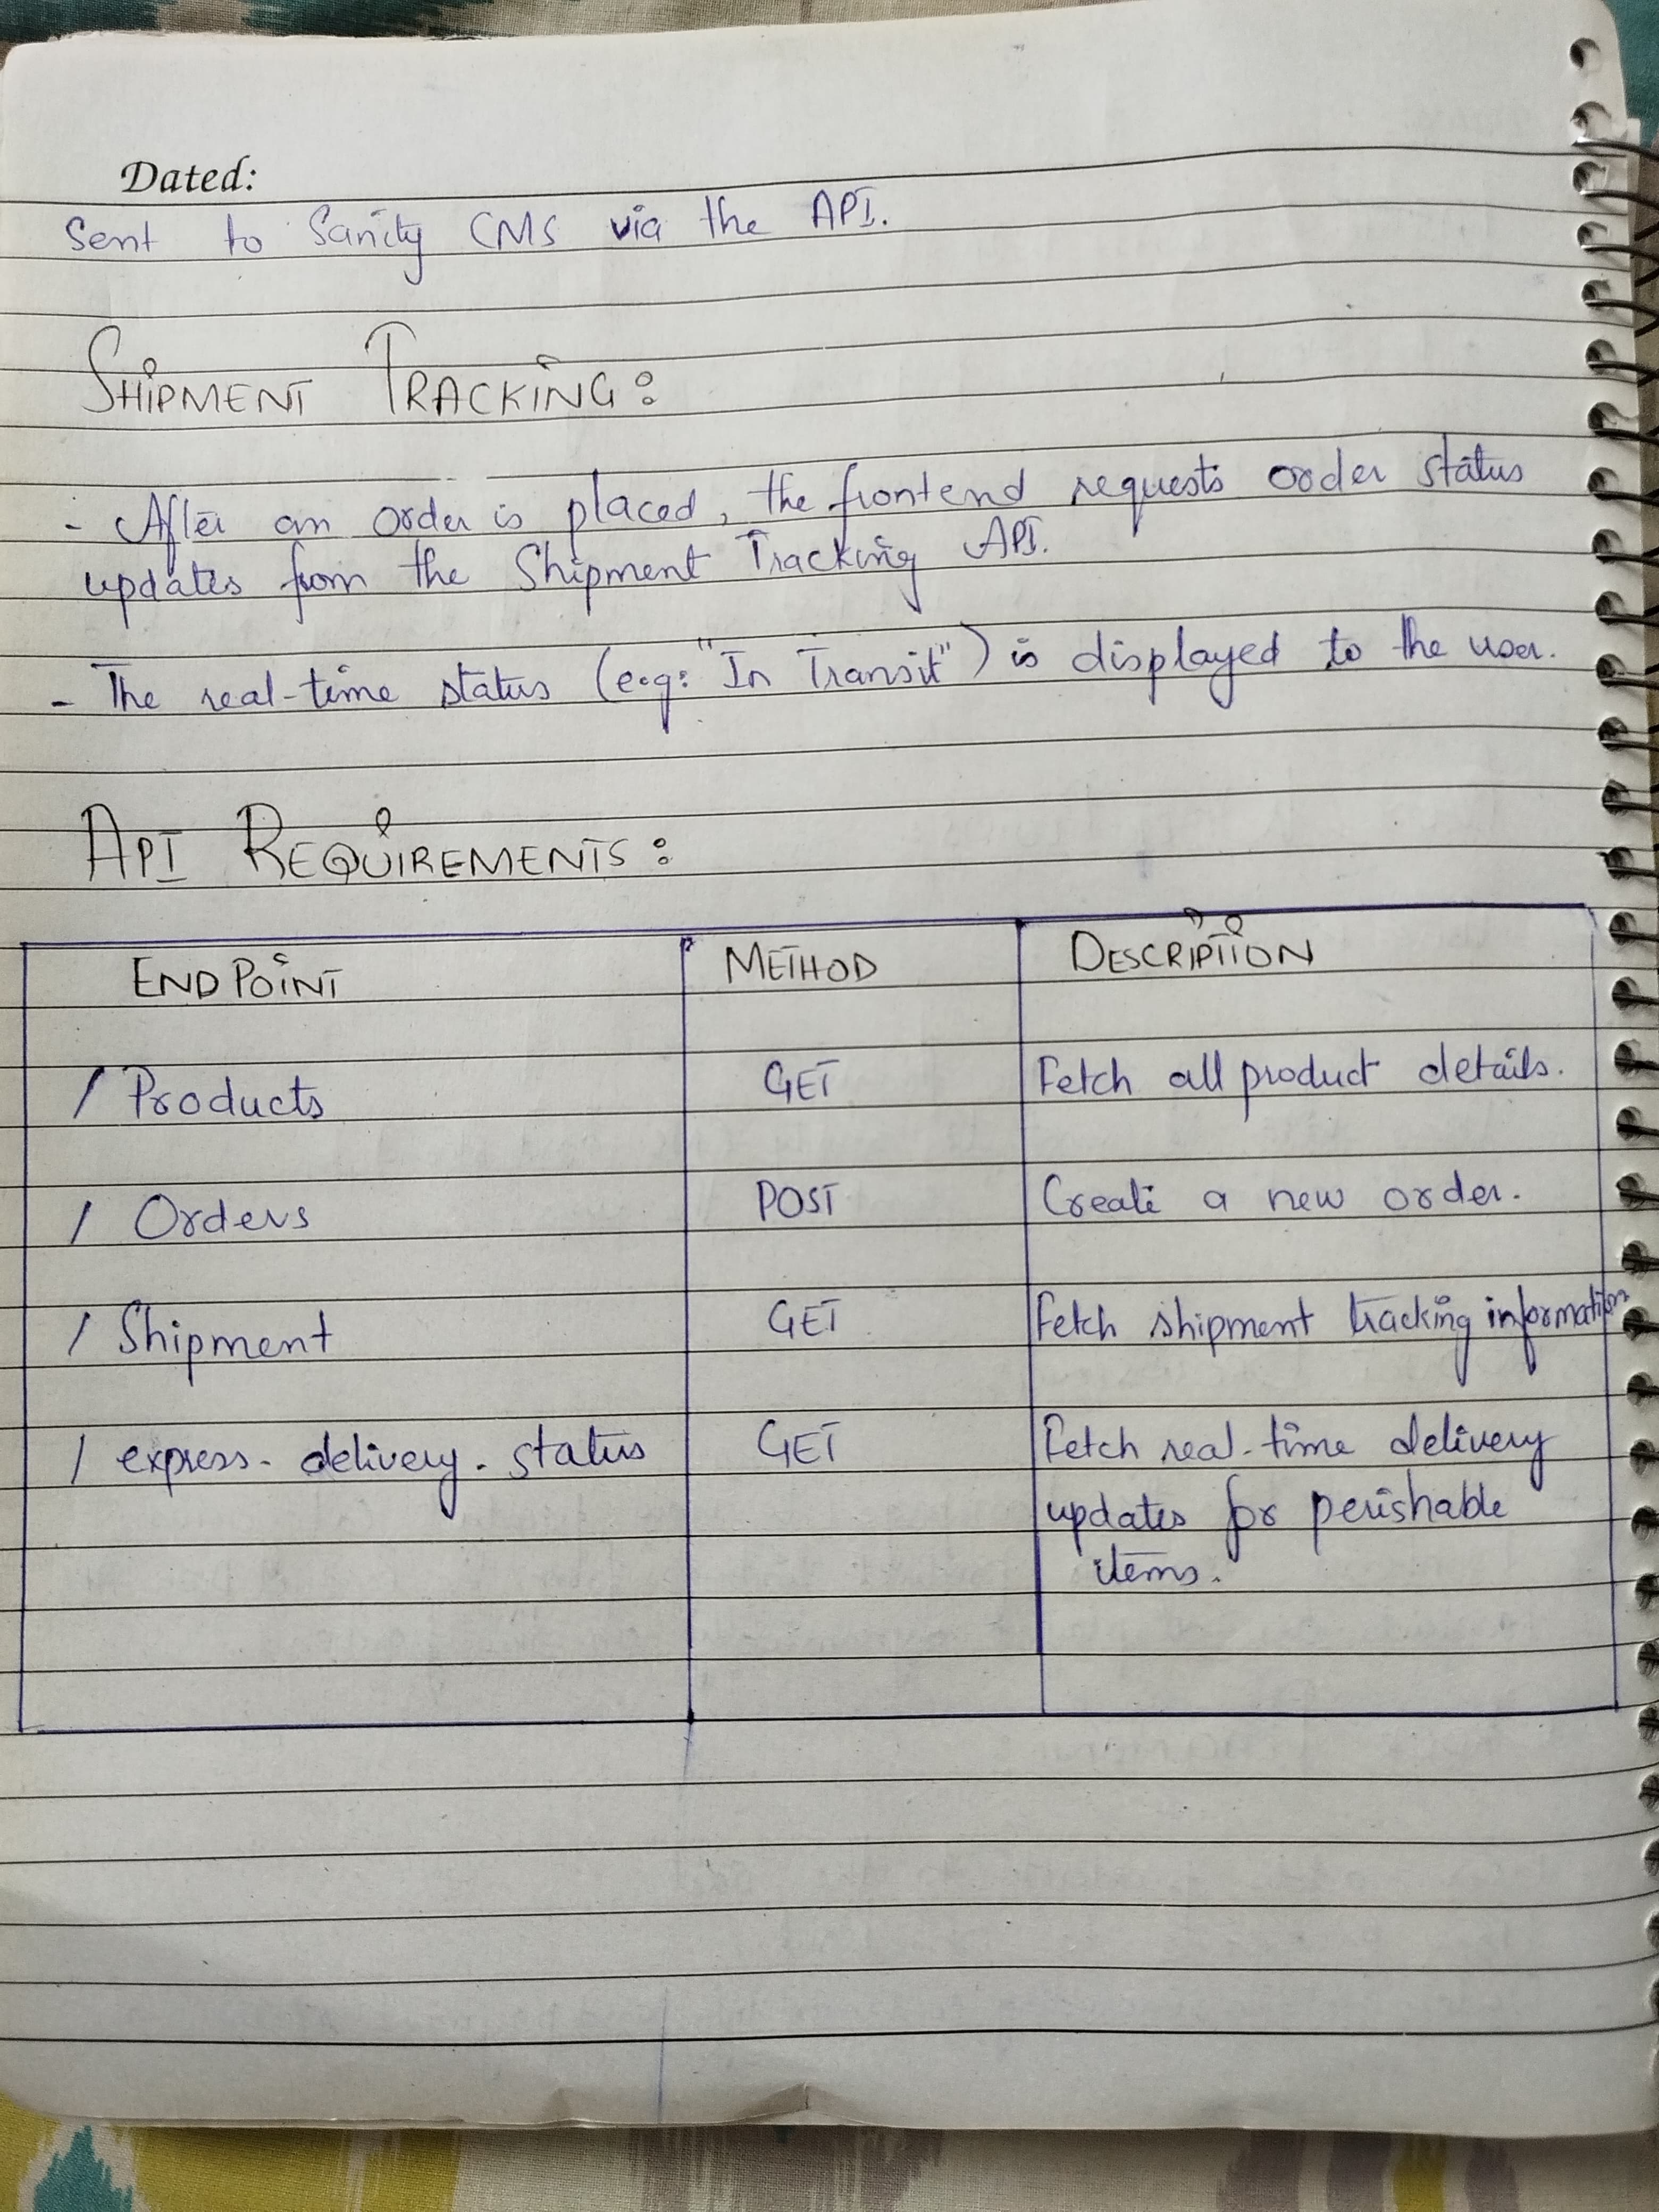 Dated:
Sent to Sanity CMS via the API.
SHIPMENT TRACKING:
- After an order is placed, the frontend requests order status
updates from the Shipment Tracking API.
- The real-time status (e.g: "In Transit") is displayed to the user.
API REQUIREMENTS:
ENDPOINT METHOD DESCRIPTION
/ Products GET Fetch all product details.
/ Orders POST Create a new order.
/ Shipment GET Fetch shipment tracking information
/ express-delivery-status GET Fetch real-time delivery
updates for perishable
items.